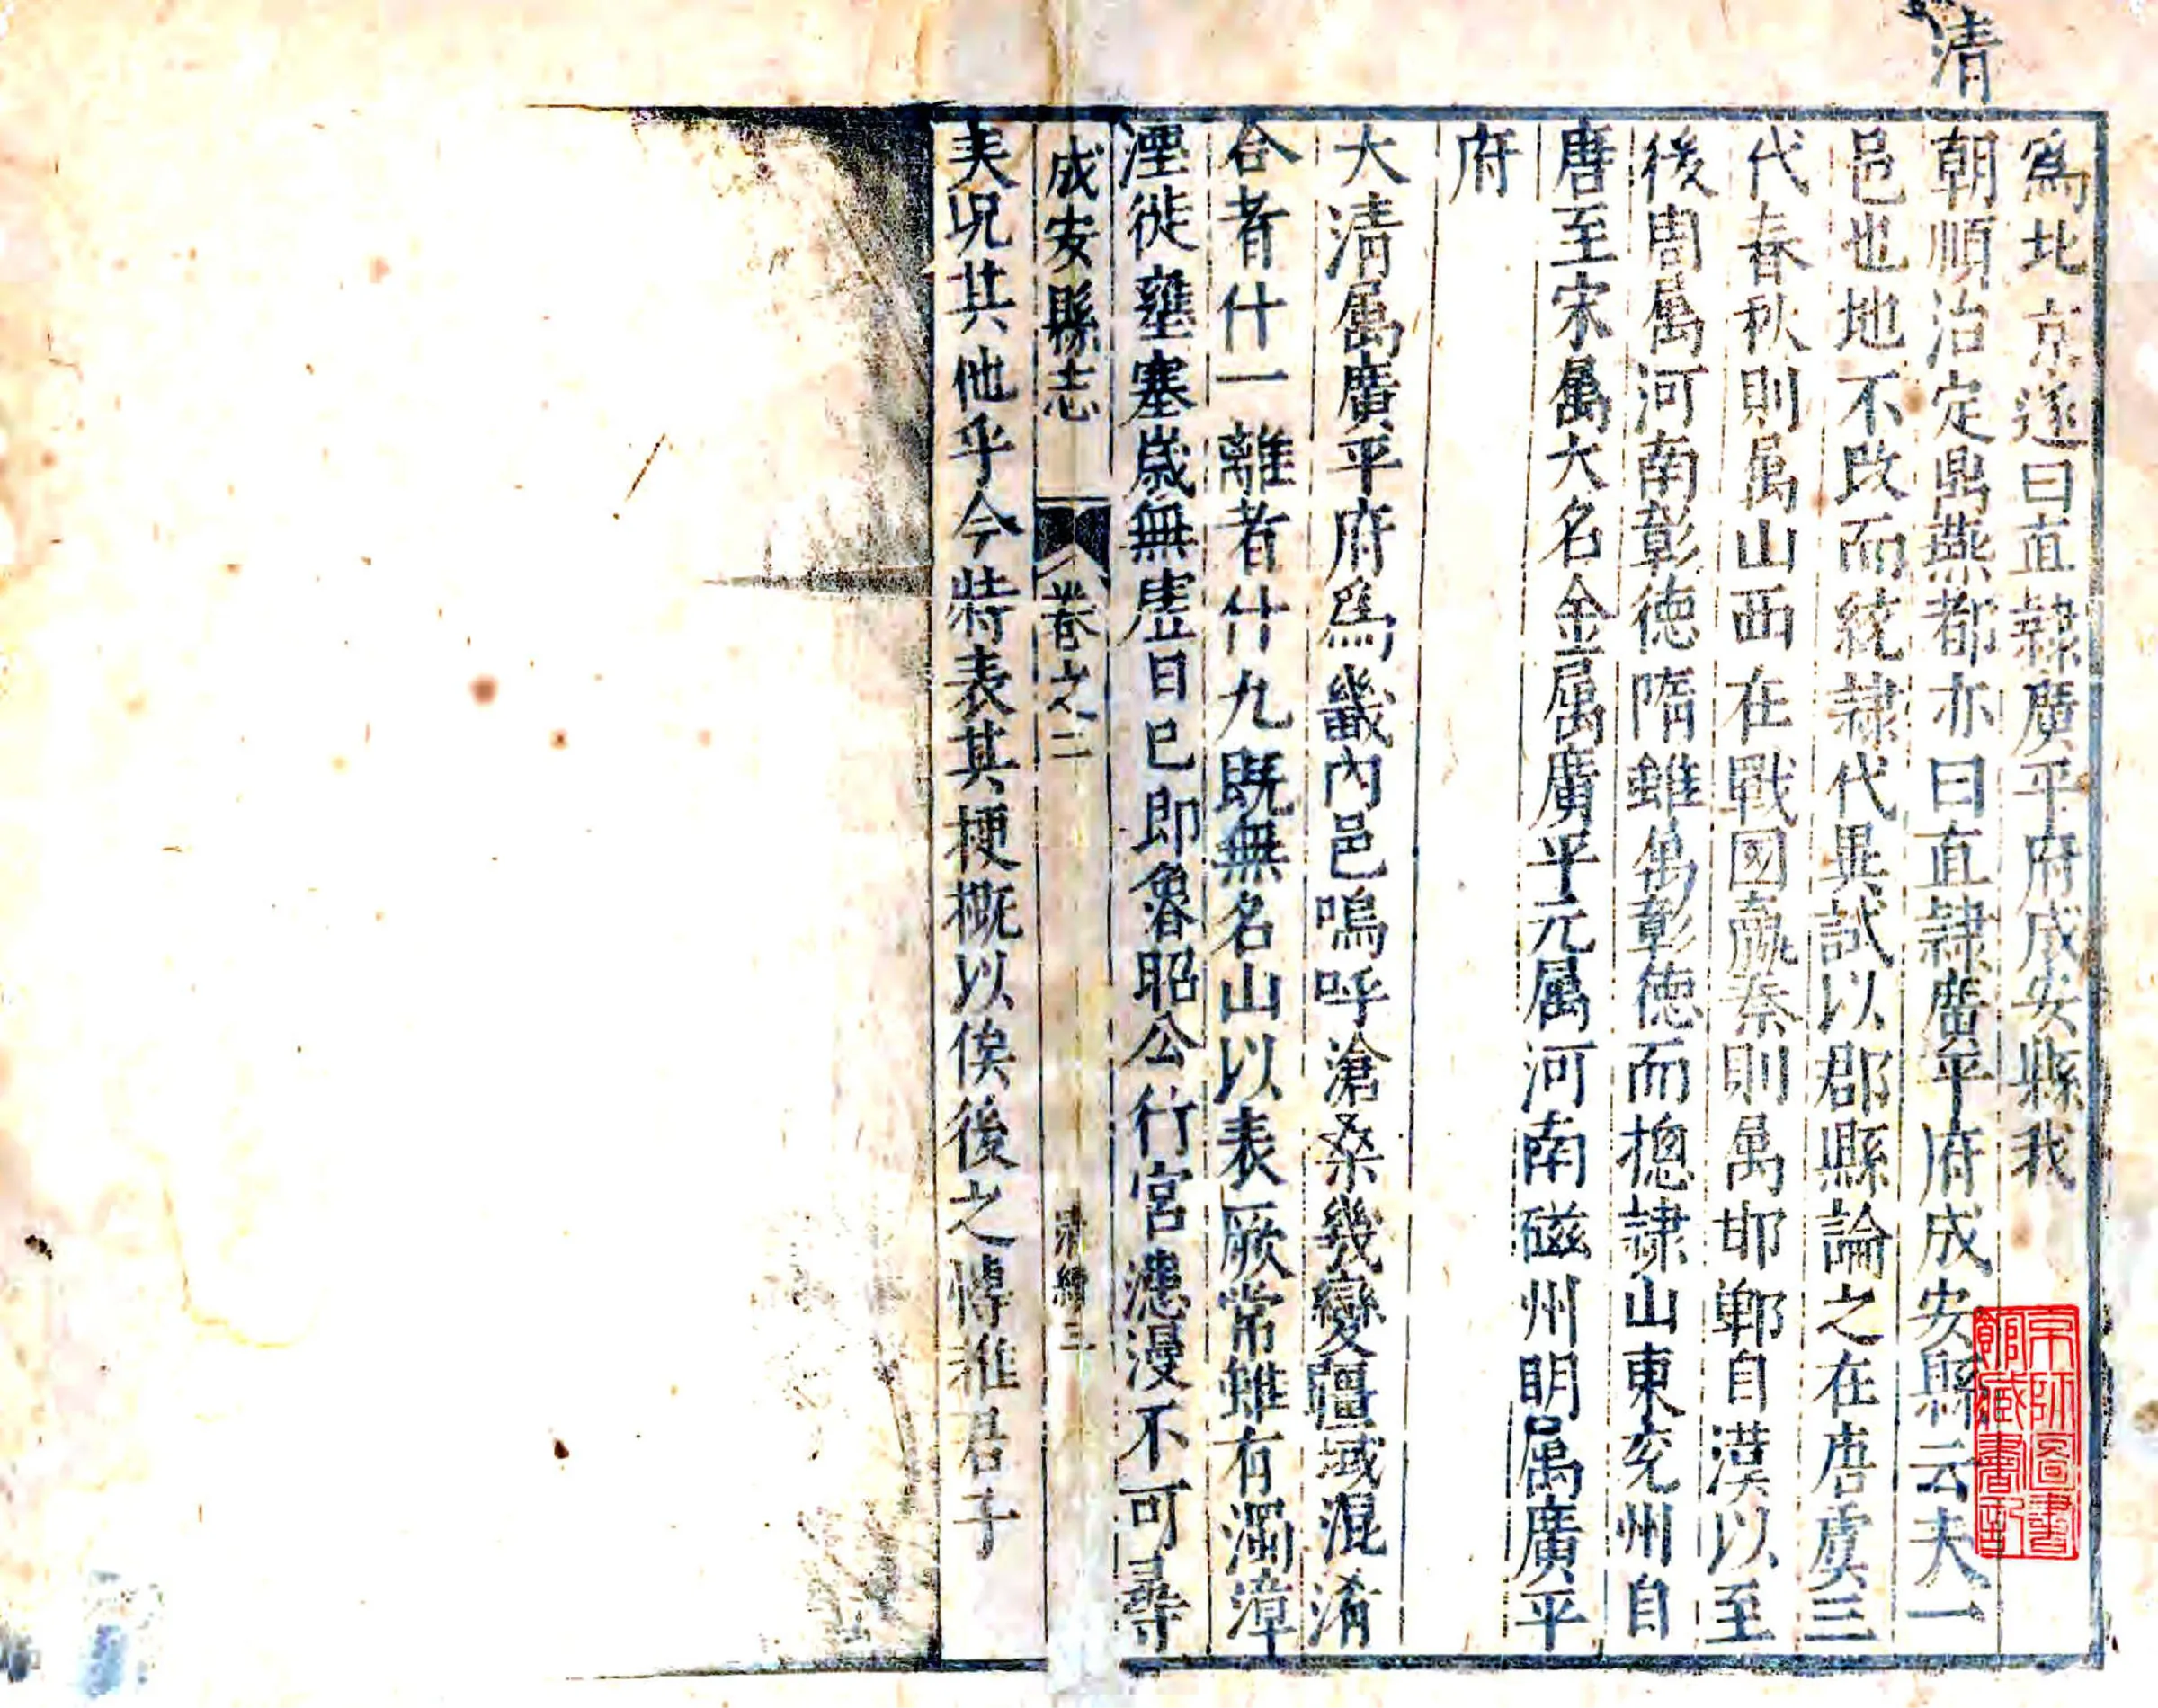 爲北京遂曰直隷廣平府成安縣我
清
朝順治定鼎燕都亦曰直隷廣平府成安縣云夫一
邑也地不改而統隷代異試以郡縣論之在唐虞三
代春秋則属山西在戰國嬴秦則属邯鄲自漢以至
後周属河南彰徳隋雖属彰徳而摠隷山東兖州自
唐至宋属大名金属廣平元属河南磁州明属廣平
府
大清属廣平府爲畿內邑嗚呼滄桑幾變疆域混淆
合者什一離者什九既無名山以表厥常雖有濁漳
湮徙壅塞歲無虗日已即魯昭公行宮漶漫不可尋
矣况其他乎今特表其梗概以俟後之博雅君子
成安縣志
卷之二
清續 三
宋師圖書
館藏書印